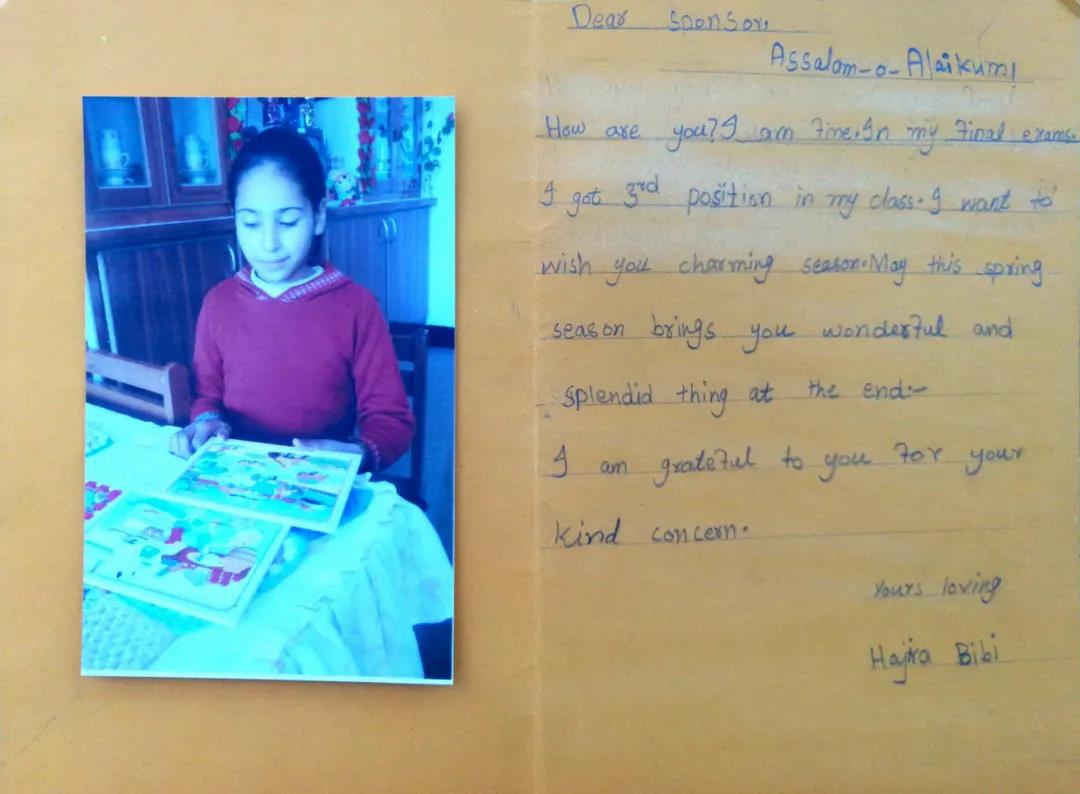 Dear sponsor.
Assalam-o-Alaikum!
How are you? I am fine. In my final exams.
I got 3rd position in my class. I want to
wish you charming season. May this spring
season brings you wonderful and
splendid thing at the end:-
I am grateful to you for your
kind concern.
Yours loving
Hajra Bibi